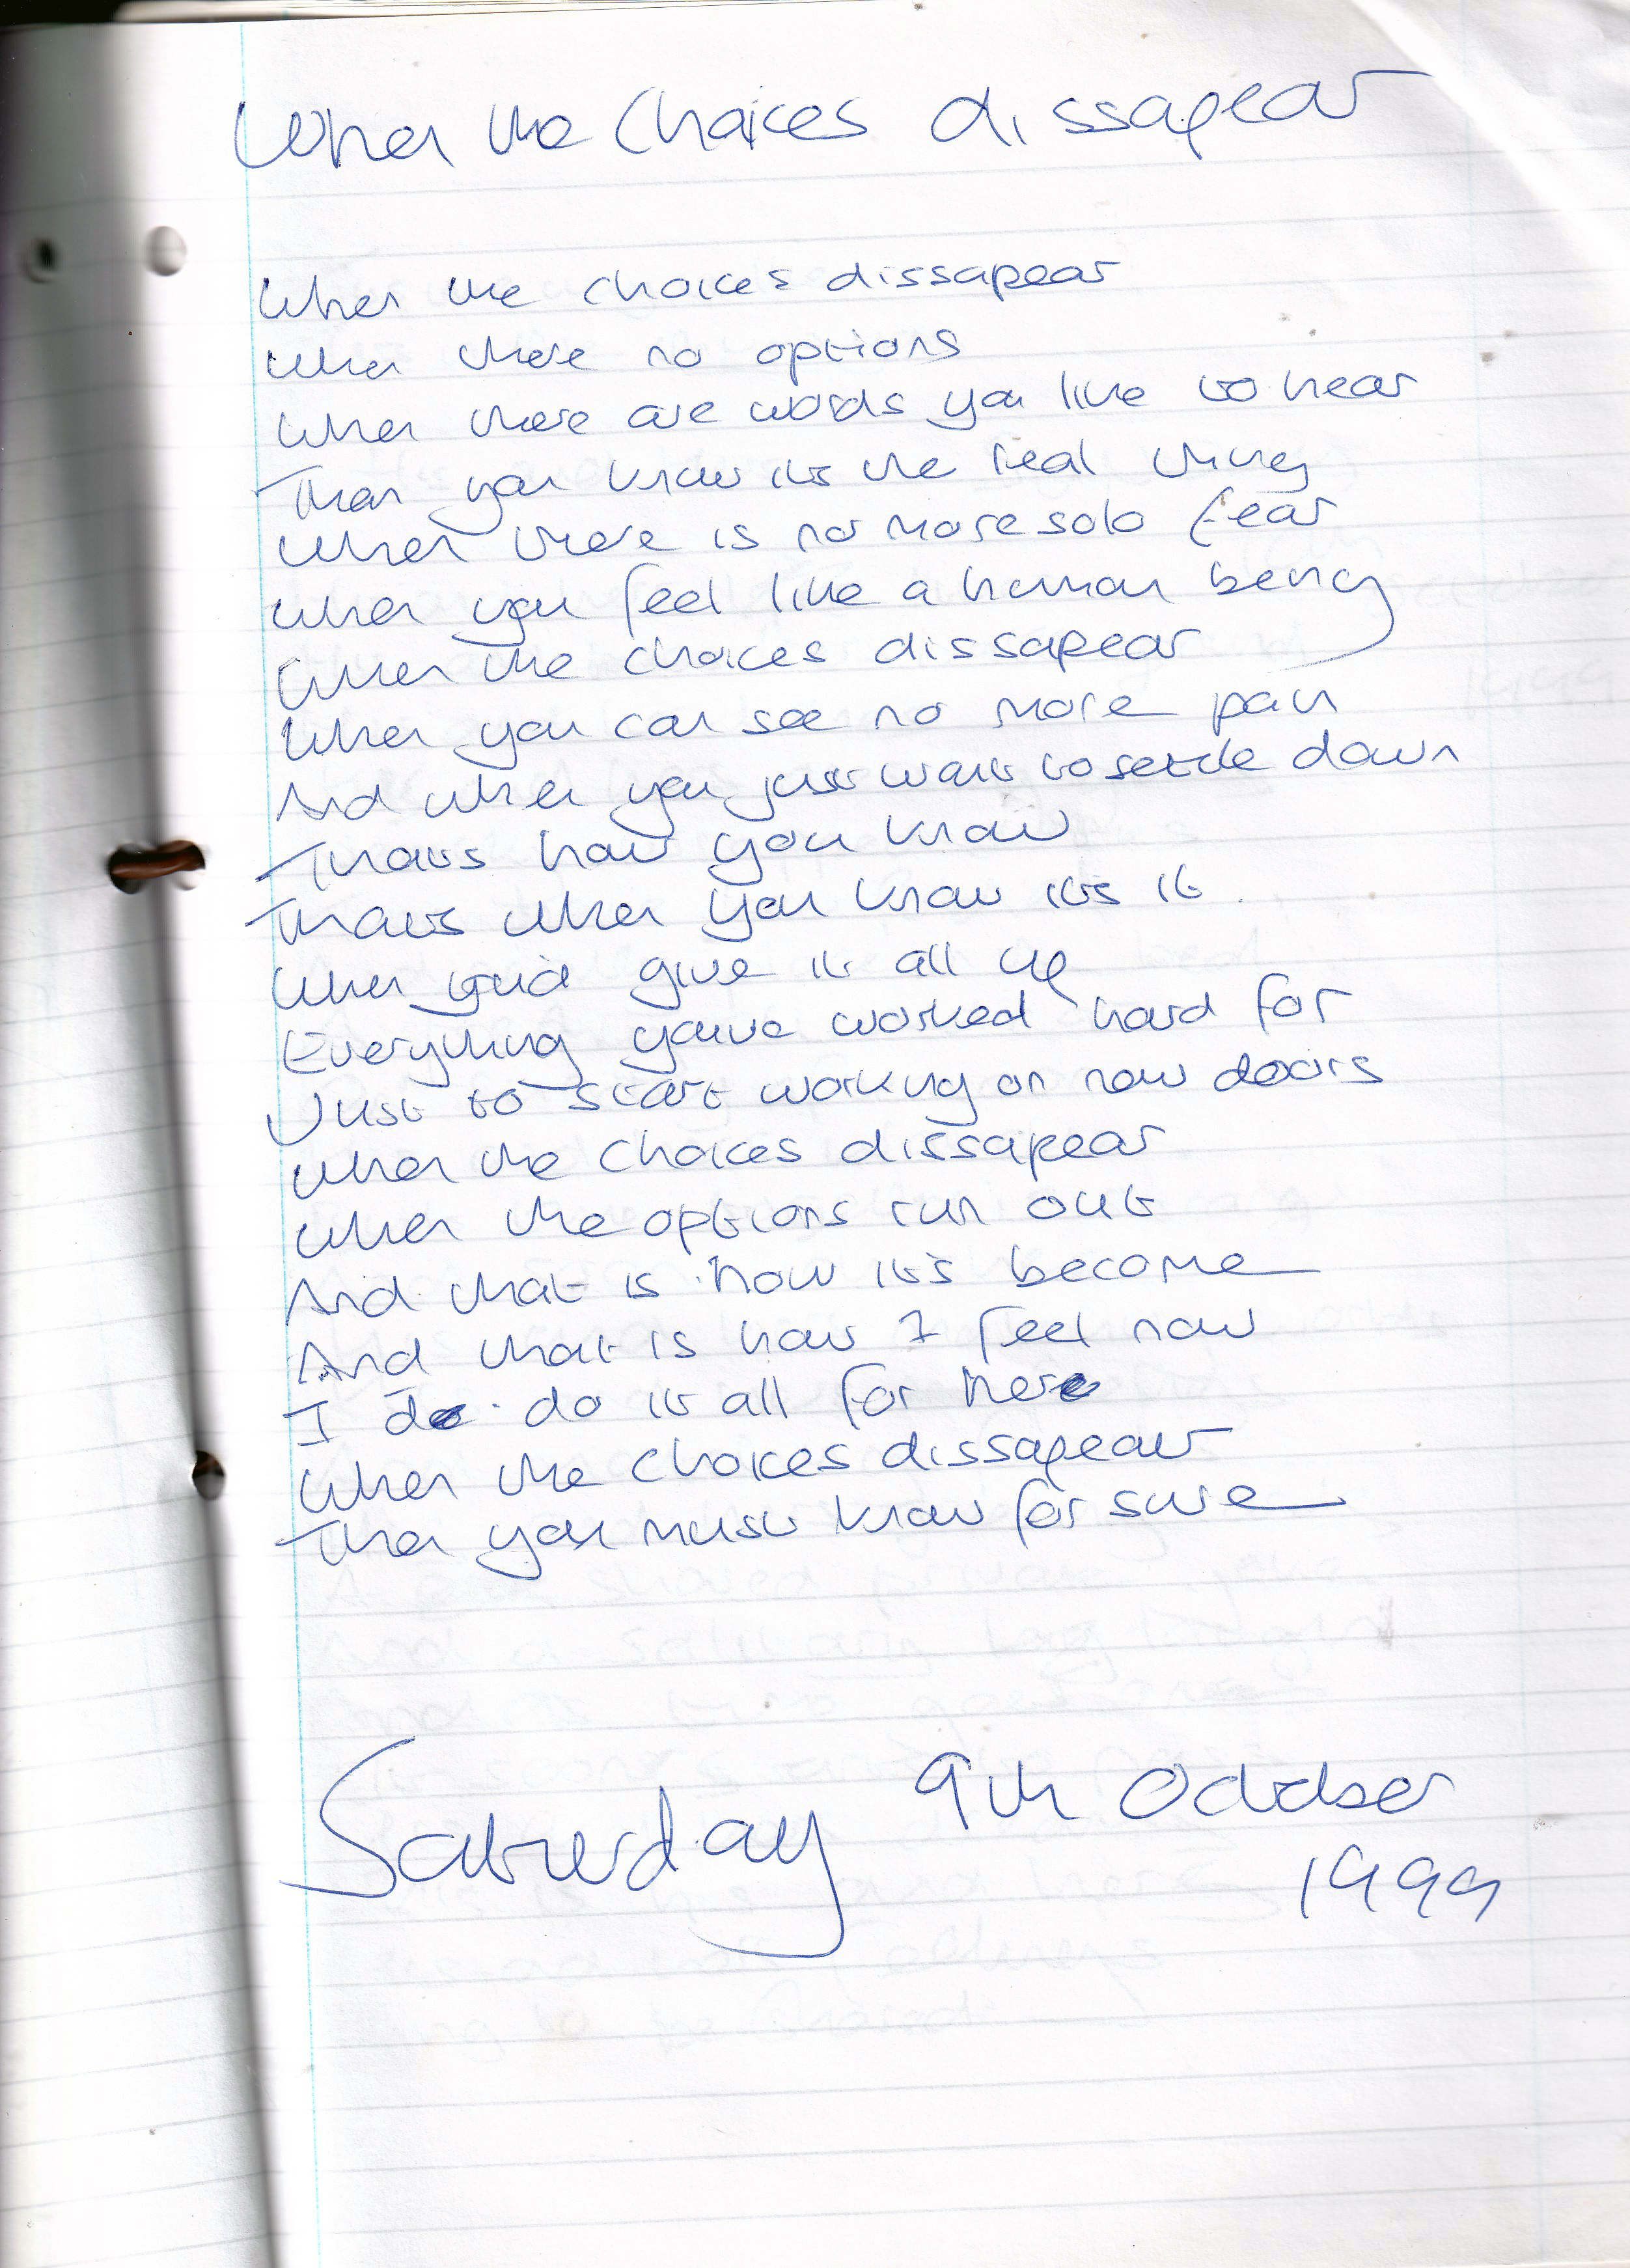 When the Choices dissapear
When the choices dissapear
When there no options
When there are words you like to hear
Then you know its the real thing
When there is no more solo fear
When you feel like a human being
When the choices dissapear
When you can see no more pain
And when you just want to settle down
Thats how you know
Thats when you know it's it.
When you'd give it all up
Everything youve worked hard for
Just to start working on new doors
When the choices dissapear
When the options run out
And that is how it's become
And that is how I feel now
I do do it all for here
When the choices dissapear
Then you must know for sure
Saturday 9th October
1999